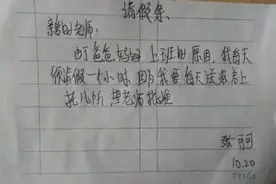 请假条
亲爱的老师：
由于爸爸妈妈上班的原因，我每天
需请假一小时，因为我要每天送弟弟上
托儿所 望老师批准
张
10.20